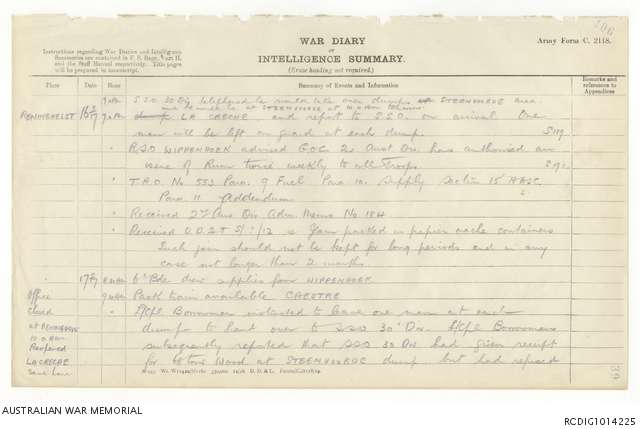 WAR DIARY
or
INTELLIGENCE SUMMARY.
(Erase heading not required.)
Army Form C. 2118.
Instructions regarding War Diaries and Intelligence
Summaries are contained in F. S. Regs., Part II.
and the Staff Manual respectively. Title pages
will be prepared in manuscript.
Place
Date
Hour
Summary of Events and Information
Remarks and
references to
Appendices
S.S.O. 30 Div telephoned to over dumps STEENVOORDE area
and at STEENVOORDE at 10 A.M.
RENINGHELST 16 9 am LA CRECHE and report to S.S.O. on arrival. One
man will be left on guard at each dump.
" R.S.O WIPPENHOEK advised GOC 2 Aust Div. has authorised an
issue of Rum twice weekly to all Troops.
" T.R.O. No 553 Para. 9 Fuel Para 10. Supply Section 15
Para 11 Addendum
" Received 2 Aus Div Adm Memo No 184
" Received D.D.S & T 5/1/12 is Jam packed in papier mache containers
Such jam should not be kept for long periods and in any
case not longer than 2 months.
17 8 am 6 Bde drew supplies from WIPPENHOEK
Office 9 am Pack train available CAESTRE
Closed " L/Cpl Bowman instructed to leave one man at each
at RENINGHELST dump to hand over to S.S.O 30 Div. L/Cpl Bowman
10 a.m. subsequently reported that SSO 30 Div had given receipt
Reopened
LA CRECHE for Wood at STEENVOORDE dump but had refused
Same hour
39
AUSTRALIAN WAR MEMORIAL
RCDIG1014225